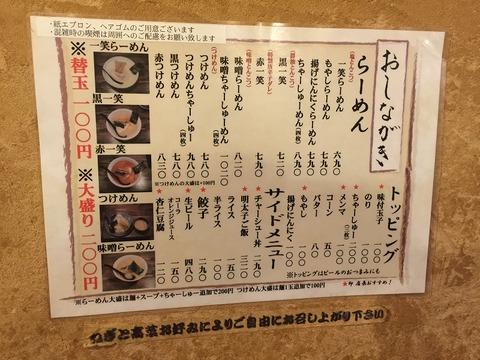 ・紙エプロン、ヘアゴムのご用意ございます
・混雑時の喫煙は周囲へのご配慮をお願い致します
おしながき
らーめん
一笑らーめん 六九〇
もやしらーめん 七九〇
揚げにんにくらーめん 七九〇
ちゃーしゅーめん(四枚) 九九〇
黒一笑 七九〇
赤一笑 七九〇
味噌らーめん 八二〇
味噌ちゃーしゅーめん(四枚)
つけめん 七八〇
つけめんちゃーしゅー(四枚)
黒つけめん 八八〇
赤つけめん 八三〇
※つけめんの大盛は+100円
一笑らーめん
黒一笑
赤一笑
つけめん
味噌らーめん
※替玉 一〇〇円
※大盛り 二〇〇円
トッピング
★味付玉子
のり
★ちゃーしゅー(二枚) 二〇〇
メンマ
コーン 五〇
バター 八〇
★もやし 一〇〇
揚げにんにく 一〇〇
※トッピングはビールのおつまみにも
★印 店長おすすめ!
サイドメニュー
★チャーシュー丼 二九〇
★明太子ご飯 三二〇
ライス
半ライス
★餃子 二九〇
★生ビール 四八〇
コーラ
オレンジジュース
★杏仁豆腐
※らーめん大盛は麺+スープ+ちゃーしゅー追加で200円 つけめん大盛は麺1玉追加で100円
ねぎと高菜お好みによりご自由にお召し上がり下さい